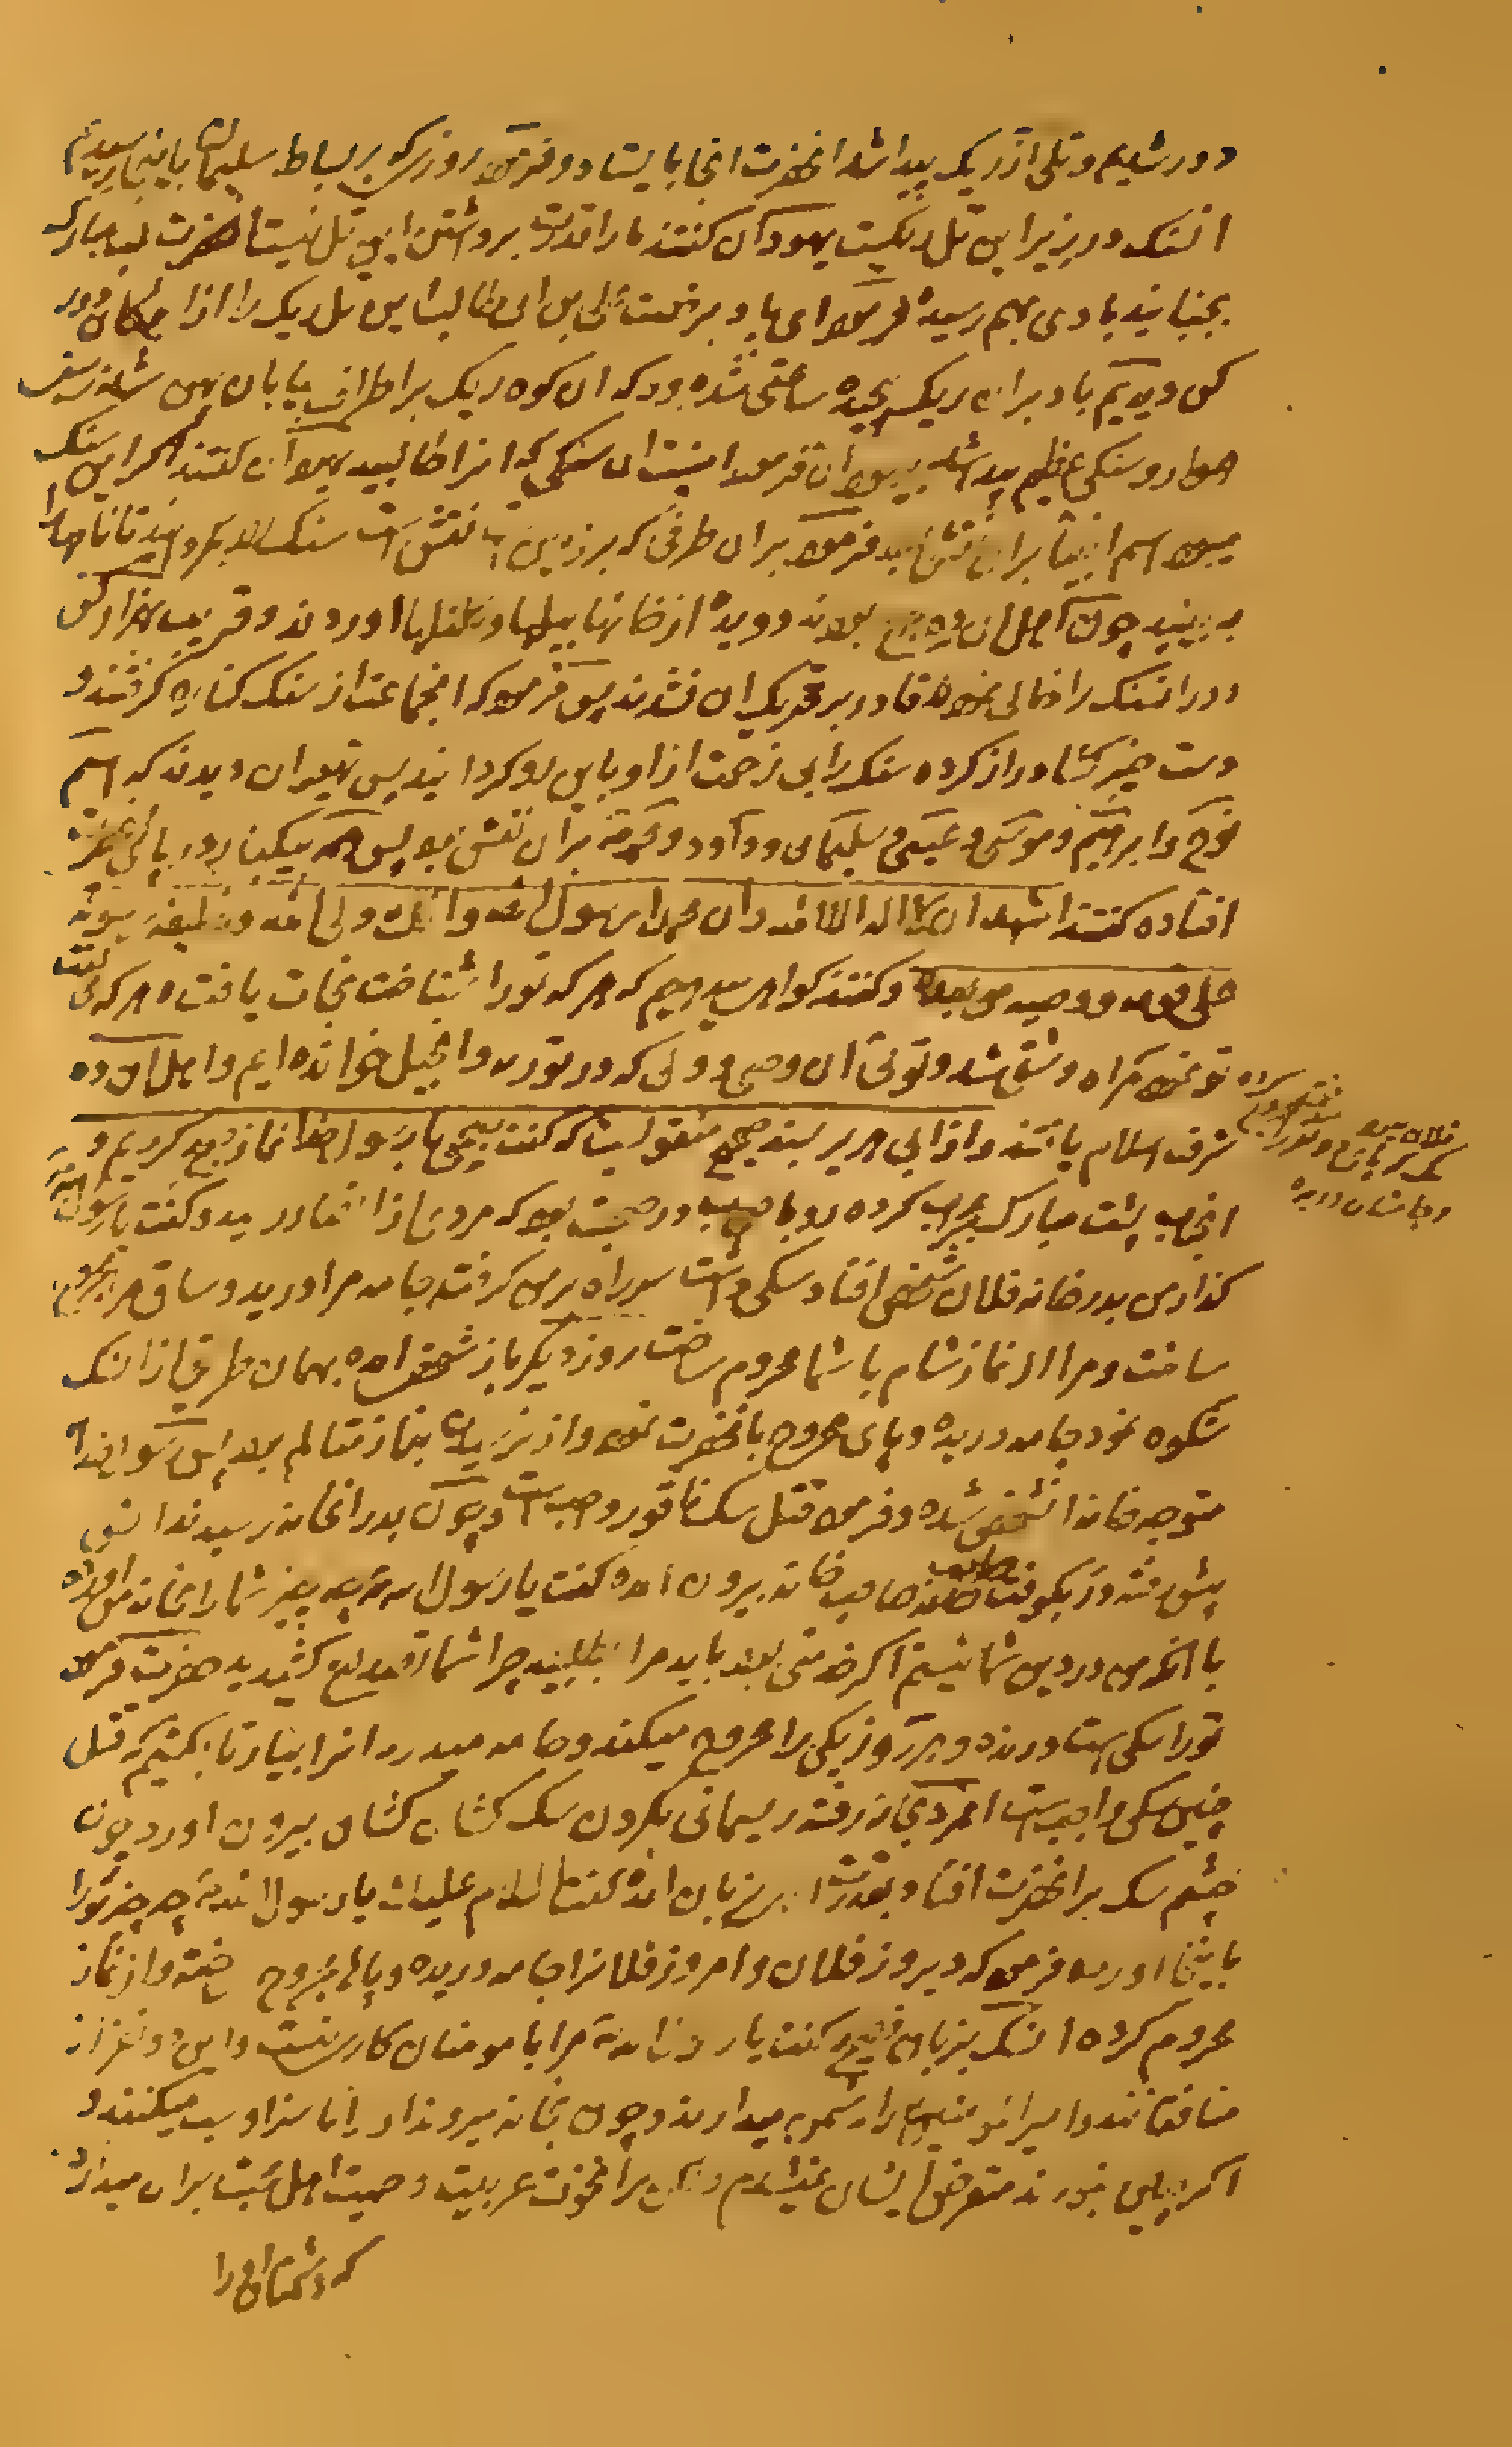 دور شدیم و تلی از ریک پیدا شد انحضرت انجا بایستاد و فرمود روزی که بر بساط سلیمان باینجا رسیدیم
انسنک در زیر این تل ریکست یهودان کفتند ما را قدرت برداشتن این تل نیست حضرت لب مبارک
بجنبانید بادی بهم رسید فرمود ای باد برخصت علی بن ابی طالب این تل ریک را از این مکان دور
کن دیدیم باد بران ریک ساعتی نشده بود که ان کوه ریک بر اطراف بیابان پهن شد زمین
هموار و سنکی عظیم پیدا شد بیهودان فرمود اینست ان سنکی که انرا طالبید یهودان کفتند اکر این سنک
میبود اسم انبیا بران نقش بود فرمود بران طرفی که بر زمین است نقش است سنک را بکردانید تا نامها را
به بینید چون اهل ان ده بودند دویده از خانها بیلها و کلنکها اوردند و قریب بهزار کس
دور انسنک را خالی نموده قادر بر تحریک ان نشدند پس فرمود که انجماعت از سنک کناره کرفتند و
دست خیبر کشا دراز کرده سنک را بی زحمت از او باین رو کردانید پس یهودان دیدند که اسم
نوح و ابراهیم و موسی و عیسی و سلیمان و داود و محمد بران نقش بود پس همه بیکبار در پای حضرت
افتاده کفتند اشهد ان لا اله الا الله و ان محمدا رسول الله و انک ولی الله و خلیفة رسوله
علی قومه و وصیه من بعده و کفتند کواه باشید که هر که تو را شناخت نجات یافت و هر که مخالفت
تو نمود کمراه و شقی شد و توئی ان وصی و ولی که در توریة و انجیل خوانده ایم و اهل ان ده
شرف اسلام یافتند و از ابی هریره بسند صحیح منقول است که کفت صبحی با رسول خدا نماز صبح کردیم و
انجناب پشت مبارک بمحراب کرده رو باصحاب در صحبت بود که مردی از انصار در امد و کفت یا رسول الله
کذار من بدر خانه فلان شخص افتاد سکی داشت سر راه بر من کرفته جامه مرا درید و ساق مرا مجروح
ساخت و مرا از نماز شام با شما محروم ساخت روز دیکر باز شخصی امده بهمان طریق از ان سک
شکوه نمود جامه دریده و پای مجروح بانحضرت نمود و از نرسیدن بنماز متالم بود پس رسول خدا
متوجه خانه انشخص شده و فرمود قتل سک عقور واجبست و چون بدر انخانه رسیدند انس
پیش رفته در بکوفت صاحب خانه بیرون امده کفت یا رسول الله چه چیز شما را بخانه من اورده
با انکه من در دین شما نیستم اکر خدمتی بود باید مرا بطلبید چرا شما تصدیع کشیدید حضرت فرمود
تو را سکی است درنده و هر روز یکی را مجروح میکند و جامه میدرد انرا بیار تا بکشم که قتل
چنین سکی واجبست انمرد بخانه رفته ریسمانی بکردن سک کشان کشان بیرون اورد چون
چشم سک بر انحضرت افتاد بقدرت بزبان امده کفت السلام علیک یا رسول الله چه چیز تو را
باینجا اورده فرمود که دیروز فلان و امروز فلانرا جامه دریده و پای مجروح ساخته و از نماز
محروم کرده ان سک بزبان فصیح کفت یا رسول الله مرا با مومنان کار نیست و این دو نفر از
منافقانند و امیرالمومنین را دشمن میدارند و چون بخانه میروند او را ناسزا و سب میکنند و
اکر چنین نبودند متعرض ایشان نمیشدم لیکن مرا نخوت عربیت و حمیت اهل بیت بران میدارد
که دشمنان او را